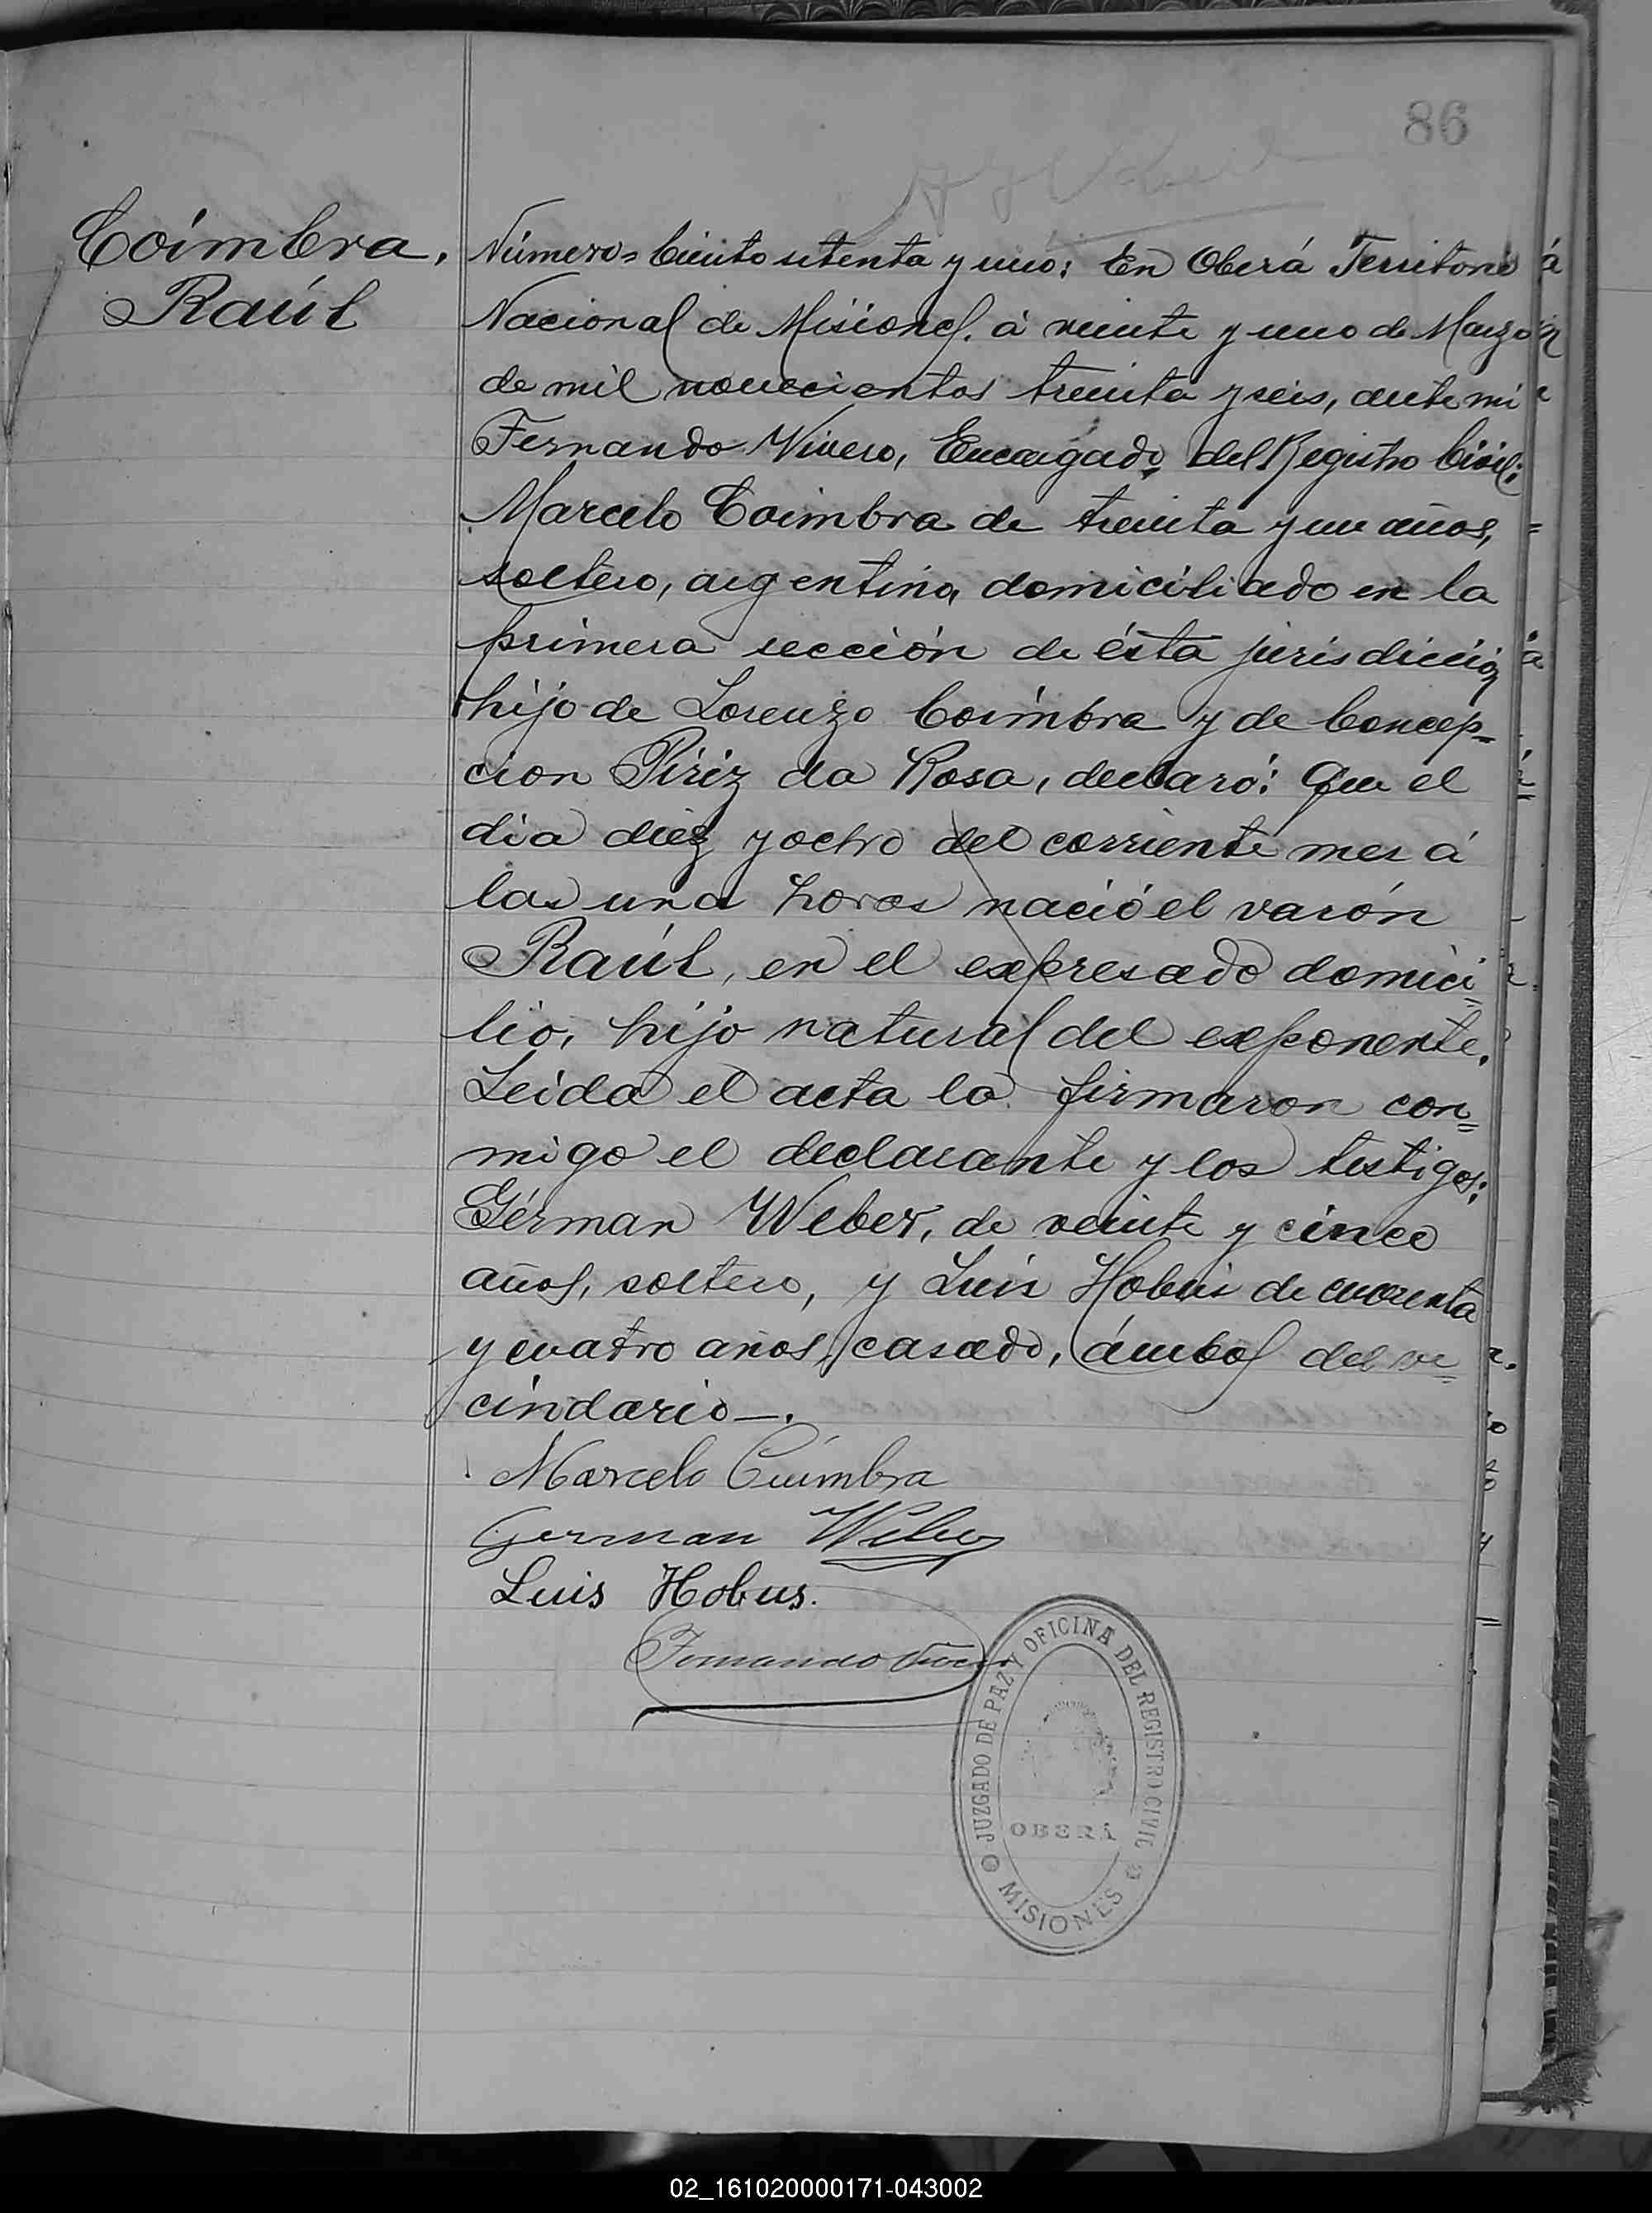 86
Coimbra,
Raúl
Número= Ciento setenta y uno: En Oberá Territorio
Nacional de Misiones. á veinte y uno de Marzo
de mil novecientos treinta y seis, ante mi
Fernando Vivero, Encargado del Registro Civil:
Marcelo Coimbra de treinta y un años,
soltero, argentino, domiciliado en la
primera sección de ésta jurisdicción
hijo de Lorenzo Coimbra y de Concep=
cion Piriz da Rosa, declaró: Que el
dia diez y ocho del corriente mes á
las una horas nació el varón
Raúl, en el expresado domici=
lio, hijo natural del exponente.
Leida el acta la firmaron con=
migo el declarante y los testigos:
Gérman Weber, de veinte y cinco
años, soltero, y Luis Hobus de cuarenta
y cuatro años, casado, ámbos del ve=
cindario—.
Marcelo Cuimbra
German Weber
Luis Hobus.
Fernando Vivero
JUZGADO DE PAZ Y OFICINA DEL REGISTRO CIVIL
OBERÁ
MISIONES
02_161020000171-043002